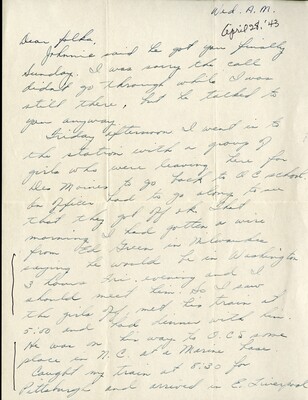 Wed. A.M.
April 28, '43
Dear folks,
Johnnie said he got you finally
Sunday. I was sorry the call
didn't go through while I was
still there, but he talked to
you anyway.
Friday afternoon I went in to
the station with a group of
girls who were leaving here for
Des Moines to go back to O.C. school.
An officer had to go along to see
that they got off ok. That
morning I had gotten a wire
from Ed Green in Milwaukee
saying he would be in Washington
3 hours Fri. evening and I
should meet him. So I saw
the girls off, met his train at
5:00 and had dinner with him.
He was on his way to O.C.S. some
place in N.C. at a Marine base.
Caught my train at 8:30 for
Pittsburgh and arrived in E. Liverpool